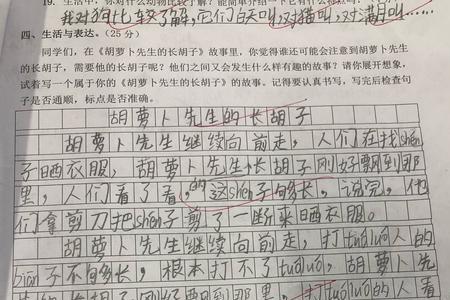 19. 生活中，你对什么动物比较了解？能简单介绍一下它有什么特点吗？
我对狗比较了解，它们白天叫，对猫叫，对满月
四、生活与表达。（25 分）
同学们，在《胡萝卜先生的长胡子》故事里，你觉得谁还可能会注意到胡萝卜先生
的长胡子，需要他的长胡子呢？他们之间又会发生什么样有趣的故事？请你展开想象，
试着写一个属于你的《胡萝卜先生的长胡子》的故事。记得要认真书写，写完后检查句
子是否通顺，标点是否准确。
胡萝卜先生的长胡子
胡萝卜先生继续向前走，人们在找shén
子晒衣服，胡萝卜先生长胡子刚好飘到那
里，人们看了看，的这shén子够长，说完，他
们拿剪刀把shén子剪了一断来晒衣服。
胡萝卜先生继续向前走，打tuóluó人的
biān子不够长，根本打不了tuóluó，胡萝卜先
生的长胡子刚好飘到那里，打tuóluó的人看